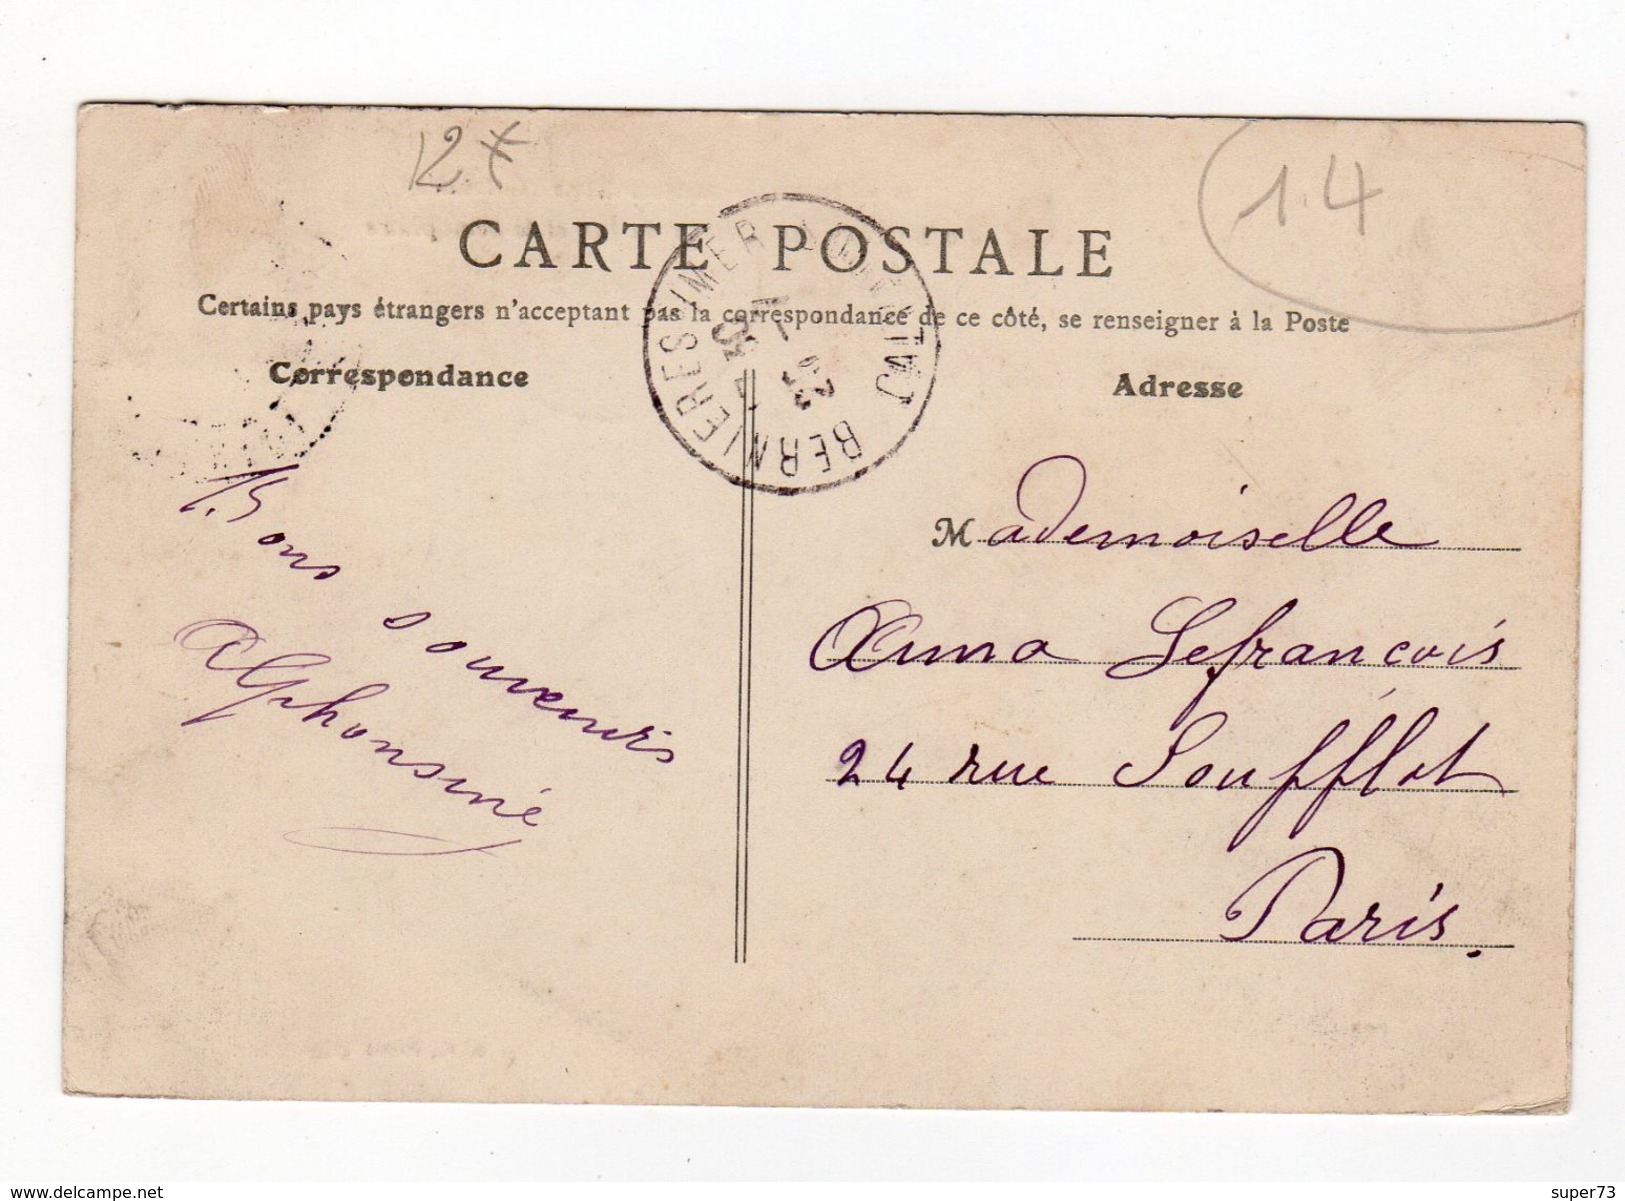 12*
1.4
CARTE POSTALE
Certains pays étrangers n'acceptant pas la correspondance de ce côté, se renseigner à la Poste
Correspondance
Adresse
BERNIERES S/MER
CALV
Bons souvenirs
Alphonsine
Mademoiselle
Anna Lefrancois
24 rue Soufflot
Paris.
www.delcampe.net
super73